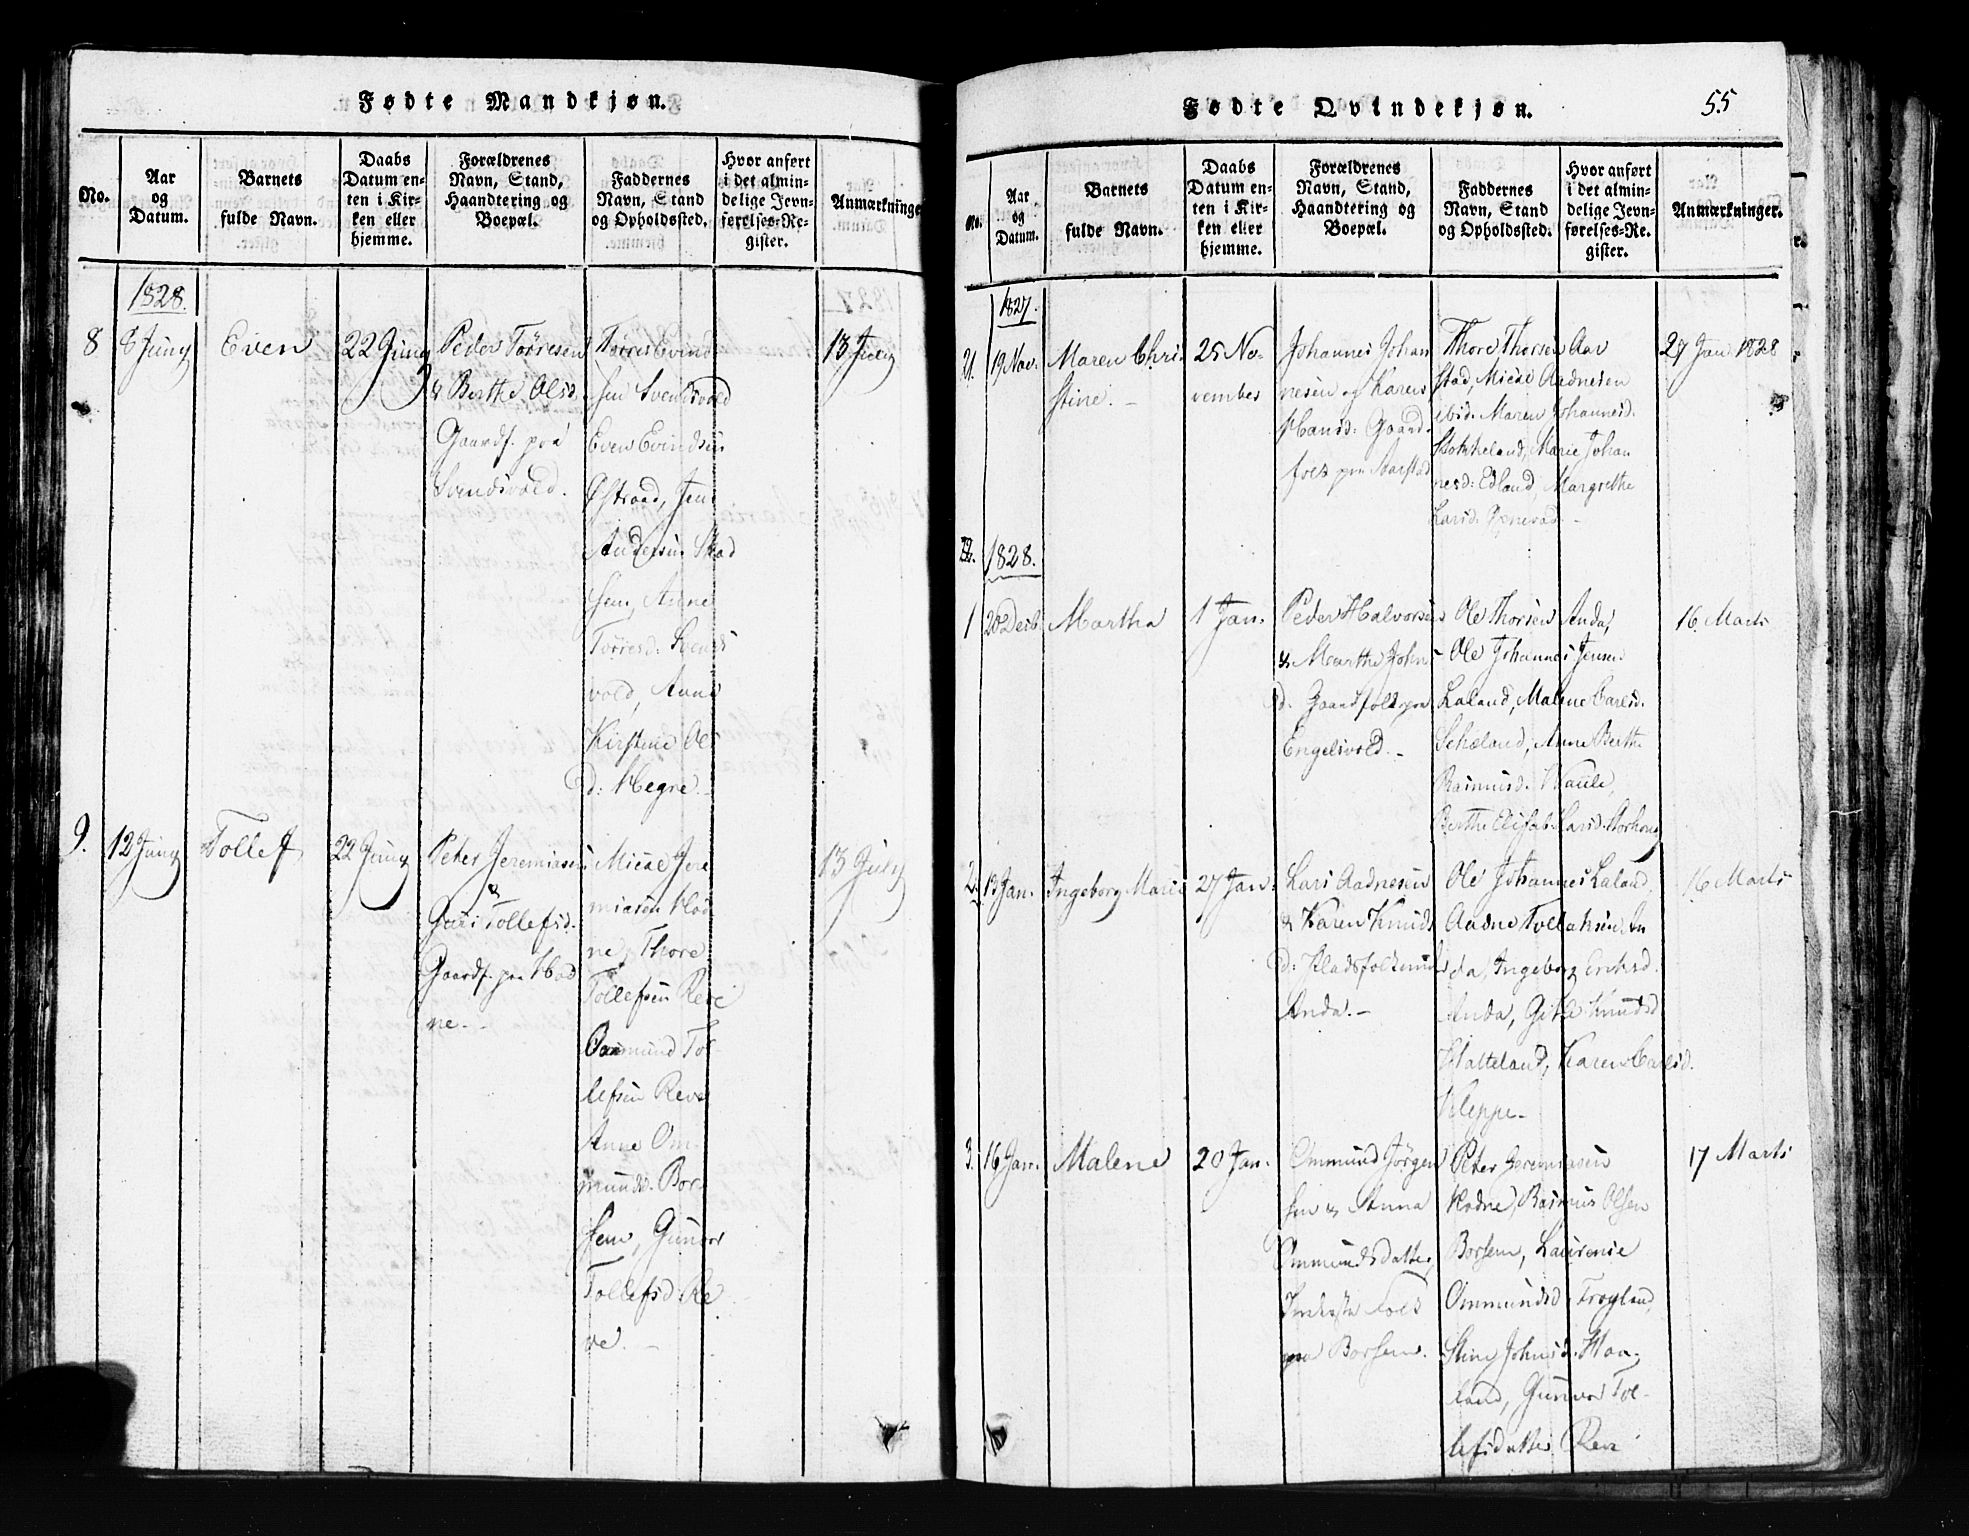 Fødte Mandkjøn.
No.
Aar
og
Datum.
Barnets
fulde Navn.
Daabs
Datum en-
ten i Kir-
ken eller
hjemme.
Forældrenes
Navn, Stand,
Haandtering og
Boepæl.
Faddernes
Navn, Stand
og Opholdssted.
Hvor anført
i det almin-
delige Jevn-
førelses-Re-
gister.
Anmærkninger
1828.
8
8 Juny
Even
22 Juny
Peder Tørresen
& Berthe Olsd.
Gaardf. paa
Svendsvold.
Tørres Evind
sen Svendsvold
Even Evindsen
Østraad, Jens
Andersen Skad
sem, Anne
Tørresd. Svends
vold, Anne
Kirstine Ol
sd: Hegre.
13 July
9.
12 Juny
Tollef
22 Juny
Peter Jeremiasen
&
Guri Tollefsd.
Gaardf. paa Hod
ne.-
Micael Jere
miasen Hod
ne, Thore
Tollefsen Reve
Ommund Tol-
lefsen Reve
Anne Om-
mundsd. Bor-
sem, Gunvor
Tollefsd. Re
ve.-
13 July
Fødte Qvindekjøn.
55
No.
Aar
og
Datum.
Barnets
fulde Navn.
Daabs
Datum en-
ten i Kir-
ken eller
hjemme.
Forældrenes
Navn, Stand,
Haandtering og
Boepæl.
Faddernes
Navn, Stand
og Opholdssted.
Hvor anført
i det almin-
delige Jevn-
førelses-Re-
gister.
Anmærkninger.
1827.
21.
19 Nov.
Maren Chri-
stine.-
25 No-
vember
Johannes Johan
nesen og Karen
Hansd: Gaard-
folk paa Aarstad
Thore Thorsen Aar
stad, Micael Aadnesen
ibid. Maren Johannesd.
Stokkeland, Marie Johan
nesd: Edland, Margrethe
Larsd.
27 Jan 1828
1828.
1
20 Decb.
Martha
1 Jan.
Peder Halvorsen
& Marthe Johns
d. Gaardfolk paa
Engelsvold.-
Ole Thorsen Anda,
Ole Johannes Jensen
Laland, Malene Carlsd.
Schæland, Anne Berth.
Rasmusd. Haule,
Berthe Elisab. Larsd. Storhoug
16 Marts
2.
13 Jan.
Ingeborg Marie
27 Jan.
Lars Aadnesen
& Karen Knuds
d: Pladsfolk under
Anda.-
Ole Johannes Laland,
Aadne Tollaksen An
da, Ingeborg Eriksd.
Anda, Gitle Knudsd
Hatteland, Karen Carlsd.
Kleppe-
16 Marts
3.
16 Jan.
Malene
20 Jan.
Ommund Jørgen
sen & Anna
Ommundsdatter,
Inderste Folk
paa Borsem.
Peter Jeremiasen
Hodne, Rasmus Olsen
Borsem, Laurense
Ommundsd. Frøyland,
Stine Johnsd. Haa-
land, Gunvor Tol-
lefsdatter Reve
17 Marts